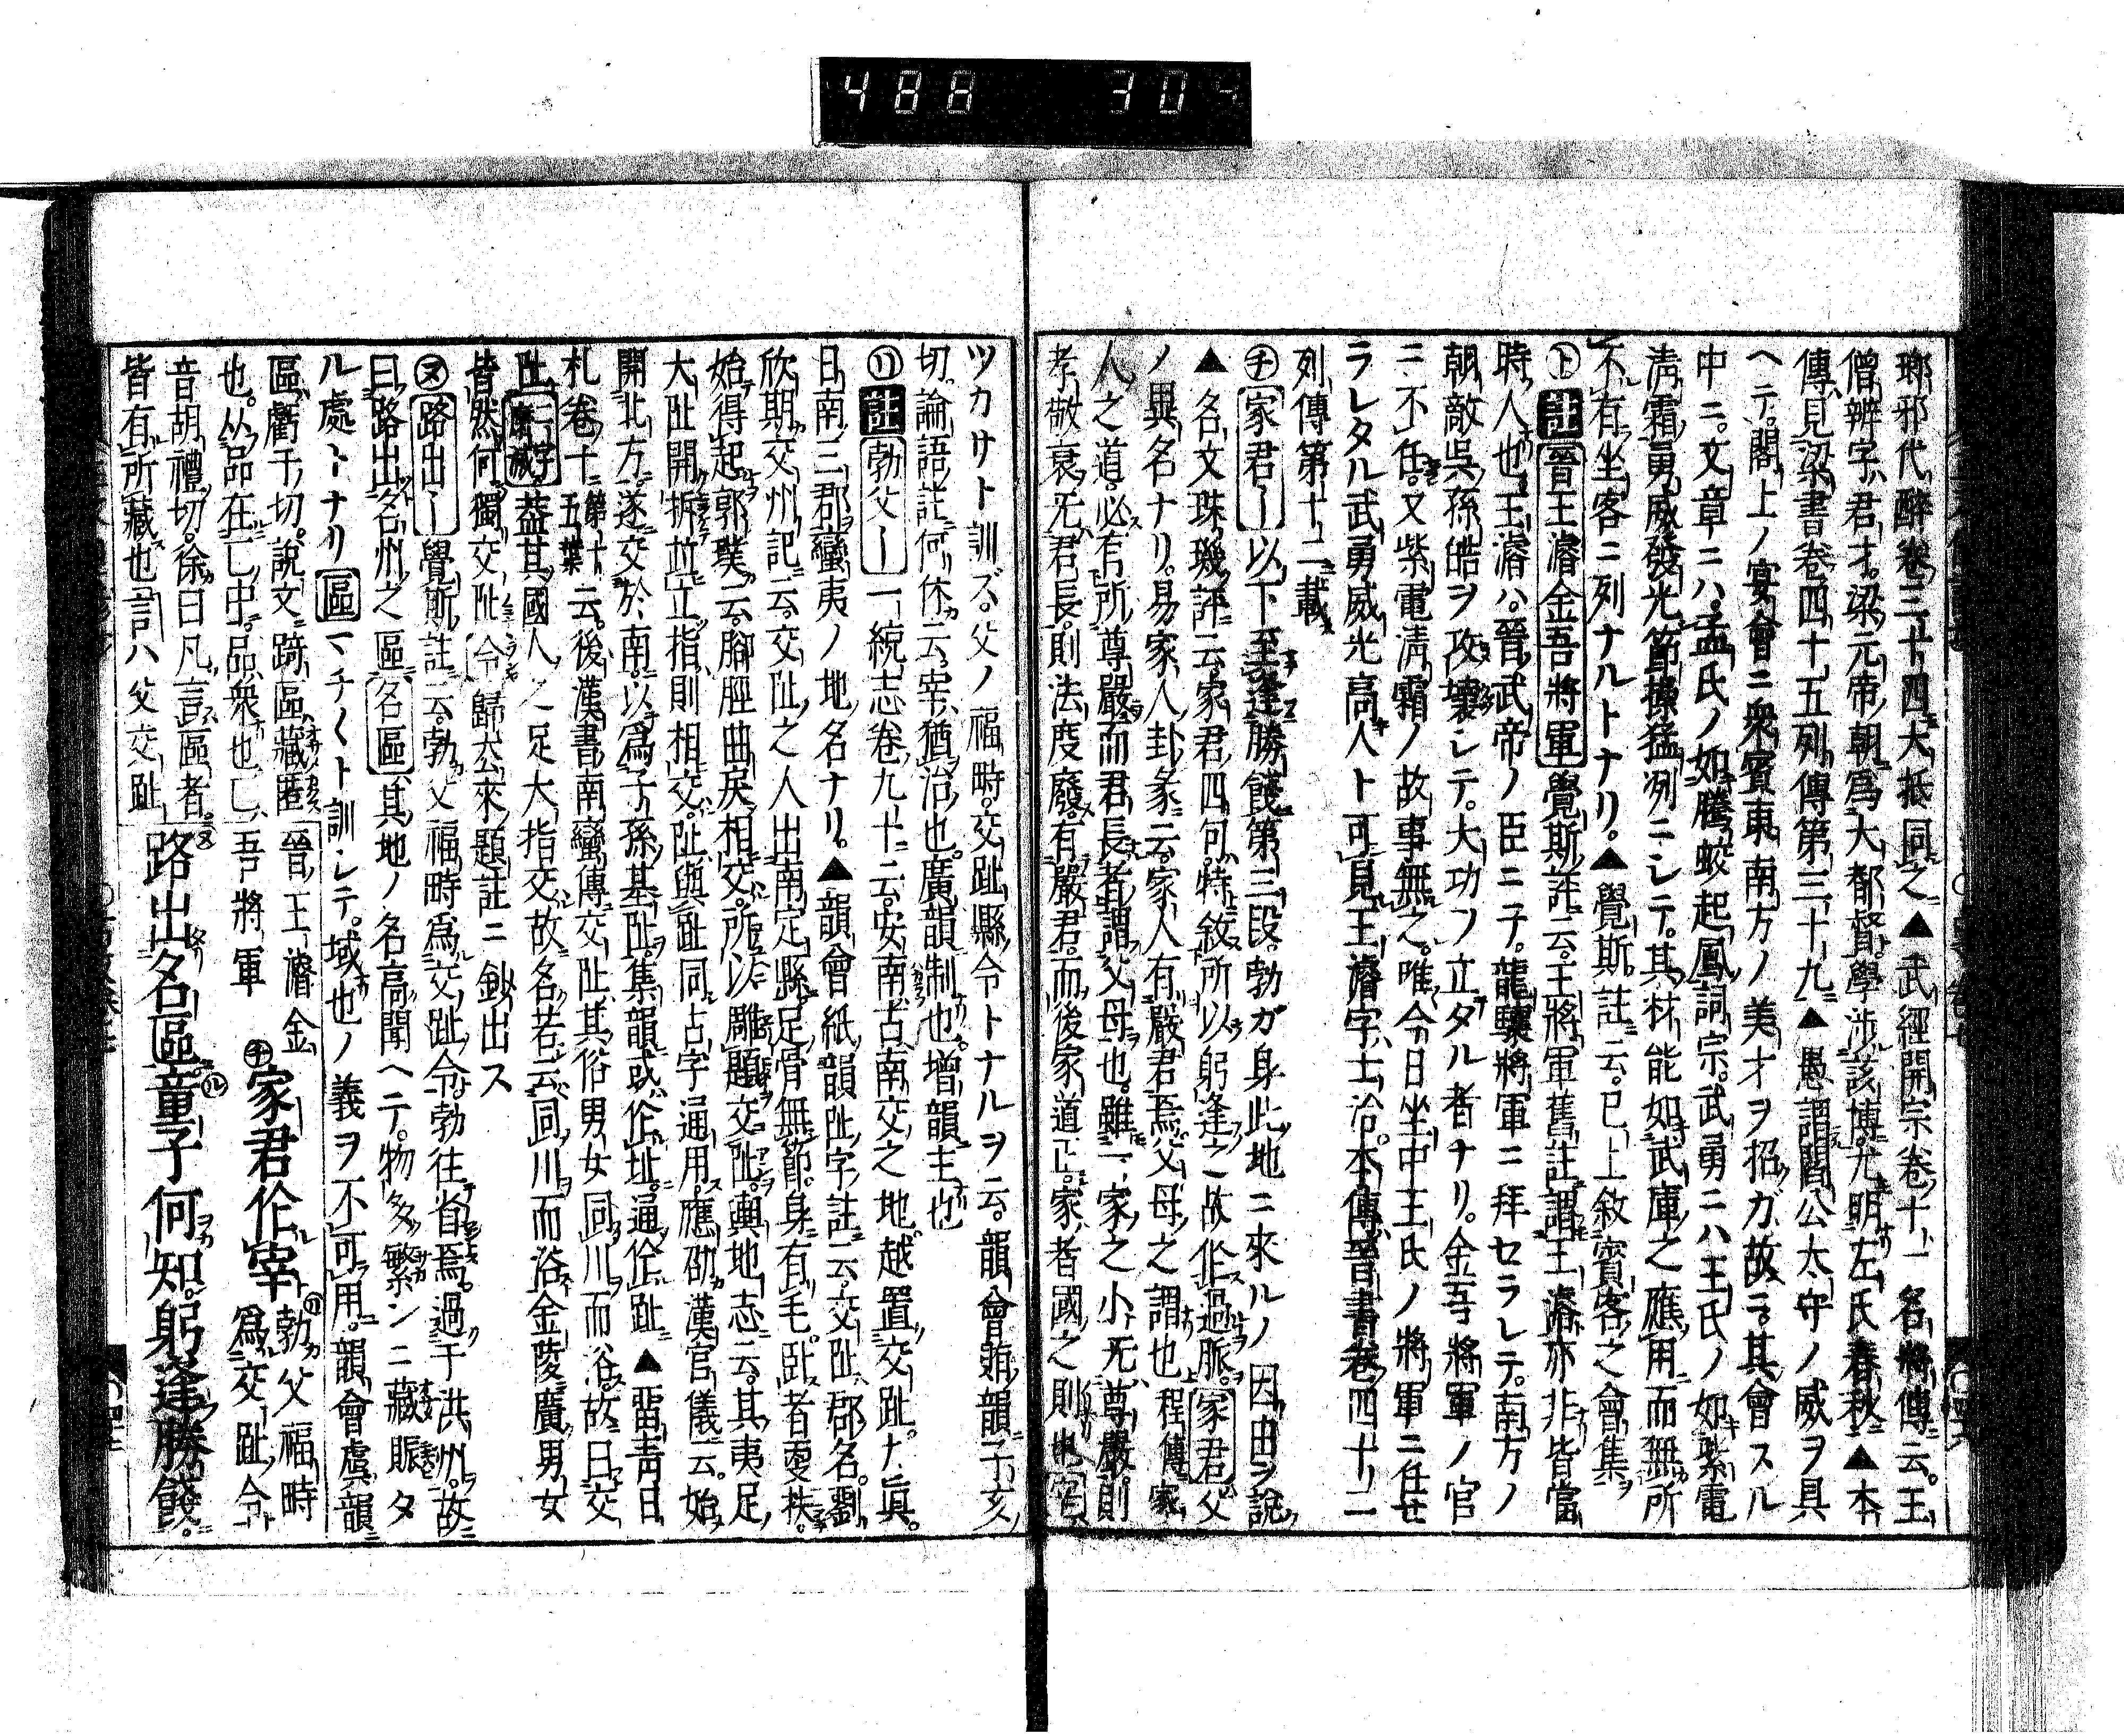 瑯邪代醉卷三十四大抵同之▲武經開宗卷十一名將傳云王
僧辨字君才梁元帝朝爲大都督學涉該博尤明左氏春秋▲本
傳見梁書卷四十五列傳第三十九▲愚謂閻公太守ノ威ヲ具
ヘテ閣上ノ宴會ニ衆賓東南方ノ美才ヲ招ガ故ニ其會スル
中ニ文章ニハ孟氏ノ如騰蛟起鳳詞宗武勇ニハ王氏ノ如紫電
淸霜勇威發光節操猛冽ニシテ其材能如武庫之應用而無所
不有坐客ニ列ナルトナリ▲覺斯註云已上敘賓客之會集
ト註晉王濬金吾將軍覺斯註云王將軍舊註謂王濬亦非皆當
時人也王濬ハ晉武帝ノ臣ニ乄龍驤將軍ニ拜セラレテ南方ノ
朝敵吳孫皓ヲ攻壞シテ大功ヲ立タル者ナリ金吾將軍ノ官
ニ不任又紫電淸霜ノ故事無之唯今日坐中王氏ノ將軍ニ任せ
ラレタル武勇威光高人ト可見王濬字士治本傳晉書卷四十二
列傳第十二載
チ家君ー以下至逢勝餞第三段勃ガ身此地ニ來ルノ因由ヲ說
▲名文珠璣評云家君四句特敘所以躬逢之故作過脈家君父
ノ異名ナリ易家人卦彖云家人有嚴君焉父母之謂也程傳家
人之道必有所尊嚴而君長者謂父母也雖一家之小无尊嚴則
孝敬衰无君長則法度廢有嚴君而後家道正家者國之則也宰
ツカサト訓ズ父ノ福畤交趾縣令トナルヲ云韻會賄韻子亥
切論語註何休云宰猶治也廣韻制也增韻主也
リ註勃父ー一統志卷九十云安南古南交之地越置交趾九眞
日南三郡蠻夷ノ地名ナリ▲韻會紙韻趾字註云交趾郡名劉
欣期交州記云交趾之人出南定縣足骨無節身有毛臥者更扶
始得起郭璞云腳脛曲戾相交所以雕題交趾輿地志云其夷足
大趾開拆並立指則相交趾與趾同古字通用應劭漢官儀云始
開北方遂交於南以爲子孫基趾集韻或作址通作趾▲畱靑日
札卷十第十五葉云後漢書南蠻傳交趾其俗男女同川而浴故曰交
趾二字磨滅葢其國人之足大指交故名若云同川而浴金陵廣男女
皆然何獨交趾令歸去來題註ニ鈔出ス
ヌ路出ー覺斯註云勃父福畤爲交趾令勃往省焉過于洪州故
曰路出名州之區名區其地ノ名高聞ヘテ物多繁ンニ藏賑タ
ル處トナリ區マチ〱ト訓レテ域也ノ義ヲ不可用韻會虞韻
區虧于切說文踦區藏匿
也从品在匸中品衆也匸
音胡禮切徐曰凡言區者
皆有所藏也言ハ父交趾
晉王濬金
吾將軍
チ家君作宰
リ勃父福畤
爲交趾令
ヌ路出名區ル童子何知躬逢勝餞